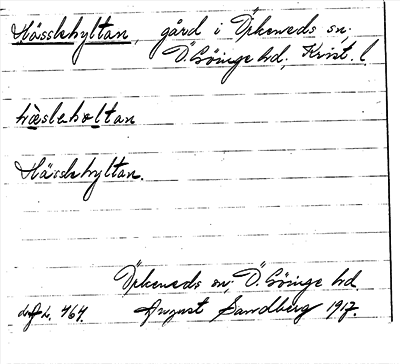 Hässlehyltan, gård i Örkeneds sn;
Ö. Göinge hd, Krist. l.
hæsləholtan
Hässlehyltan.
Örkeneds sn; Ö. Göinge hd.
August Sandberg 1917.